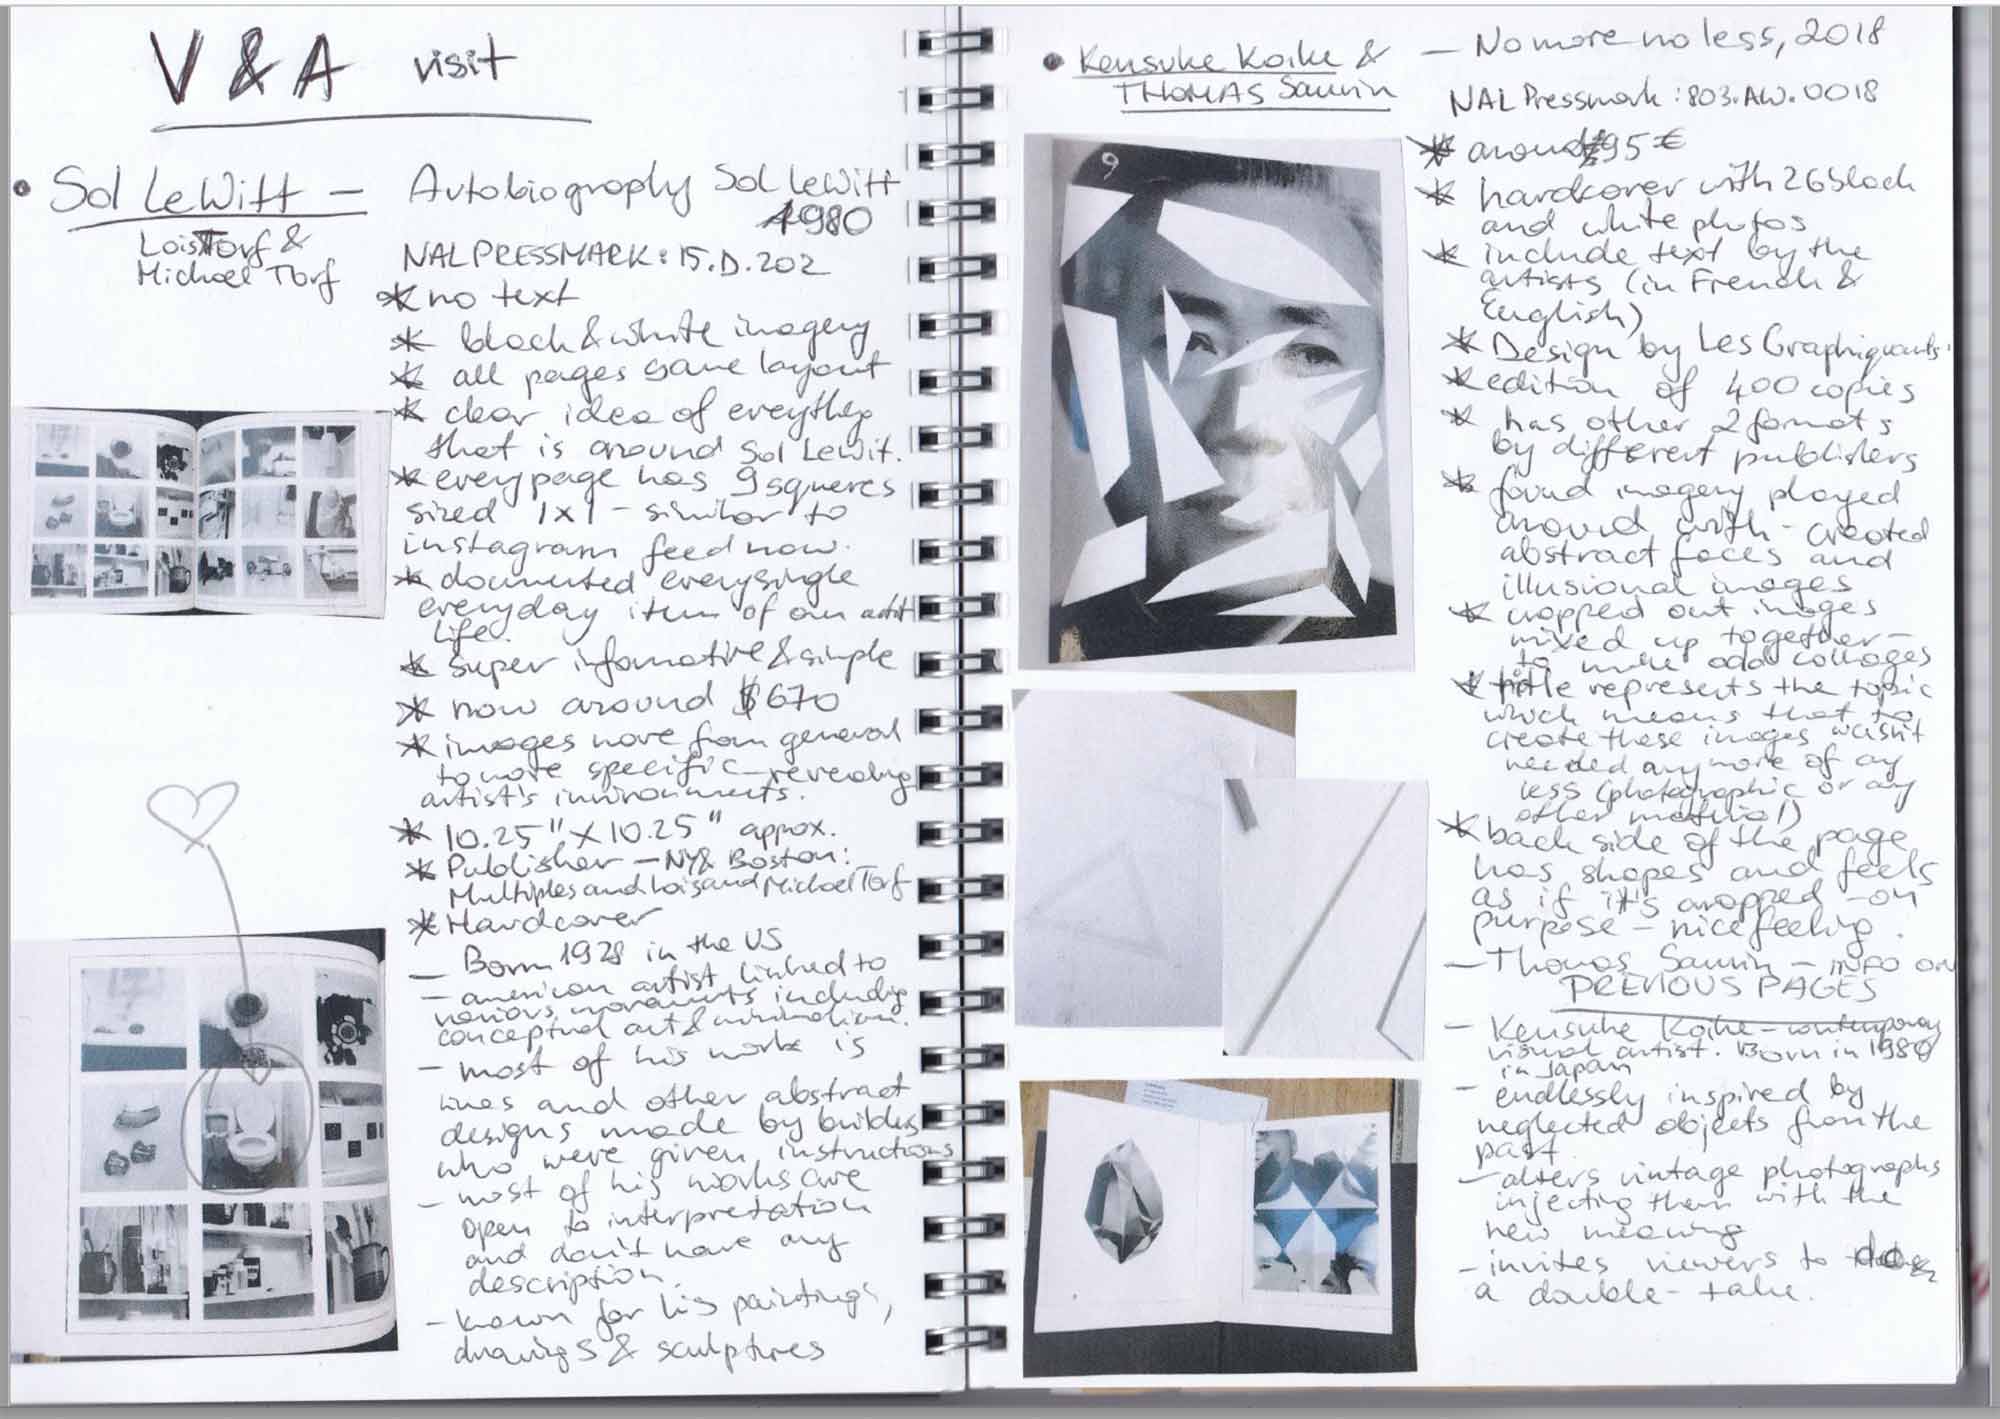 V & A visit
• Sol LeWitt –
Lois Torf &
Michael Torf
Autobiography Sol LeWitt
1980
NAL PRESSMARK: 15.D.202
* no text
* black & white imagery
* all pages same layout
* clear idea of everything
that is around Sol Lewit.
* every page has 9 squeres
sized 1x1 – similar to
instagram feed now.
* documented every single
everyday item of an artist
life.
* super informative & simple
* now around $670
* images move from general
to more specific – revealing
artist's invironments.
* 10.25" x 10.25" approx.
* Publisher – NY & Boston:
Multiples and Lois and Michael Torf
* Hardcover
– Born 1928 in the US
– american artist linked to
various movements including
conceptual art & minimalism.
– most of his work is
lines and other abstract
designs made by builders
who were given instructions
– most of his works are
open to interpretation
and don't have any
description.
– known for his paintings,
drawings & sculptures
• Kensuke Koike &
THOMAS Sauvin
– No more no less, 2018
NAL Pressmark: 803.AW.0018
9
* around 95 €
* hardcover with 26 black
and white photos
* include text by the
artists (in French &
English)
* Design by Les Graphiquants
* edition of 400 copies
* has other 2 formats
by different publishers
* found imagery played
around with – created
abstract faces and
illusional images
* cropped out images
mixed up together –
to make odd collages
* title represents the topic
which means that to
create these images wasn't
needed any more of any
less (photographic or any
other material)
* back side of the page
has shapes and feels
as if it's cropped – on
purpose – nice feeling.
– Thomas Sauvin – INFO ON
PREVIOUS PAGES
– Kensuke Koike – contemporary
visual artist. Born in 1980
in Japan
– endlessly inspired by
neglected objects from the
past.
– alters vintage photographs
injecting them with the
new meaning
– invites viewers to do
a double-take.